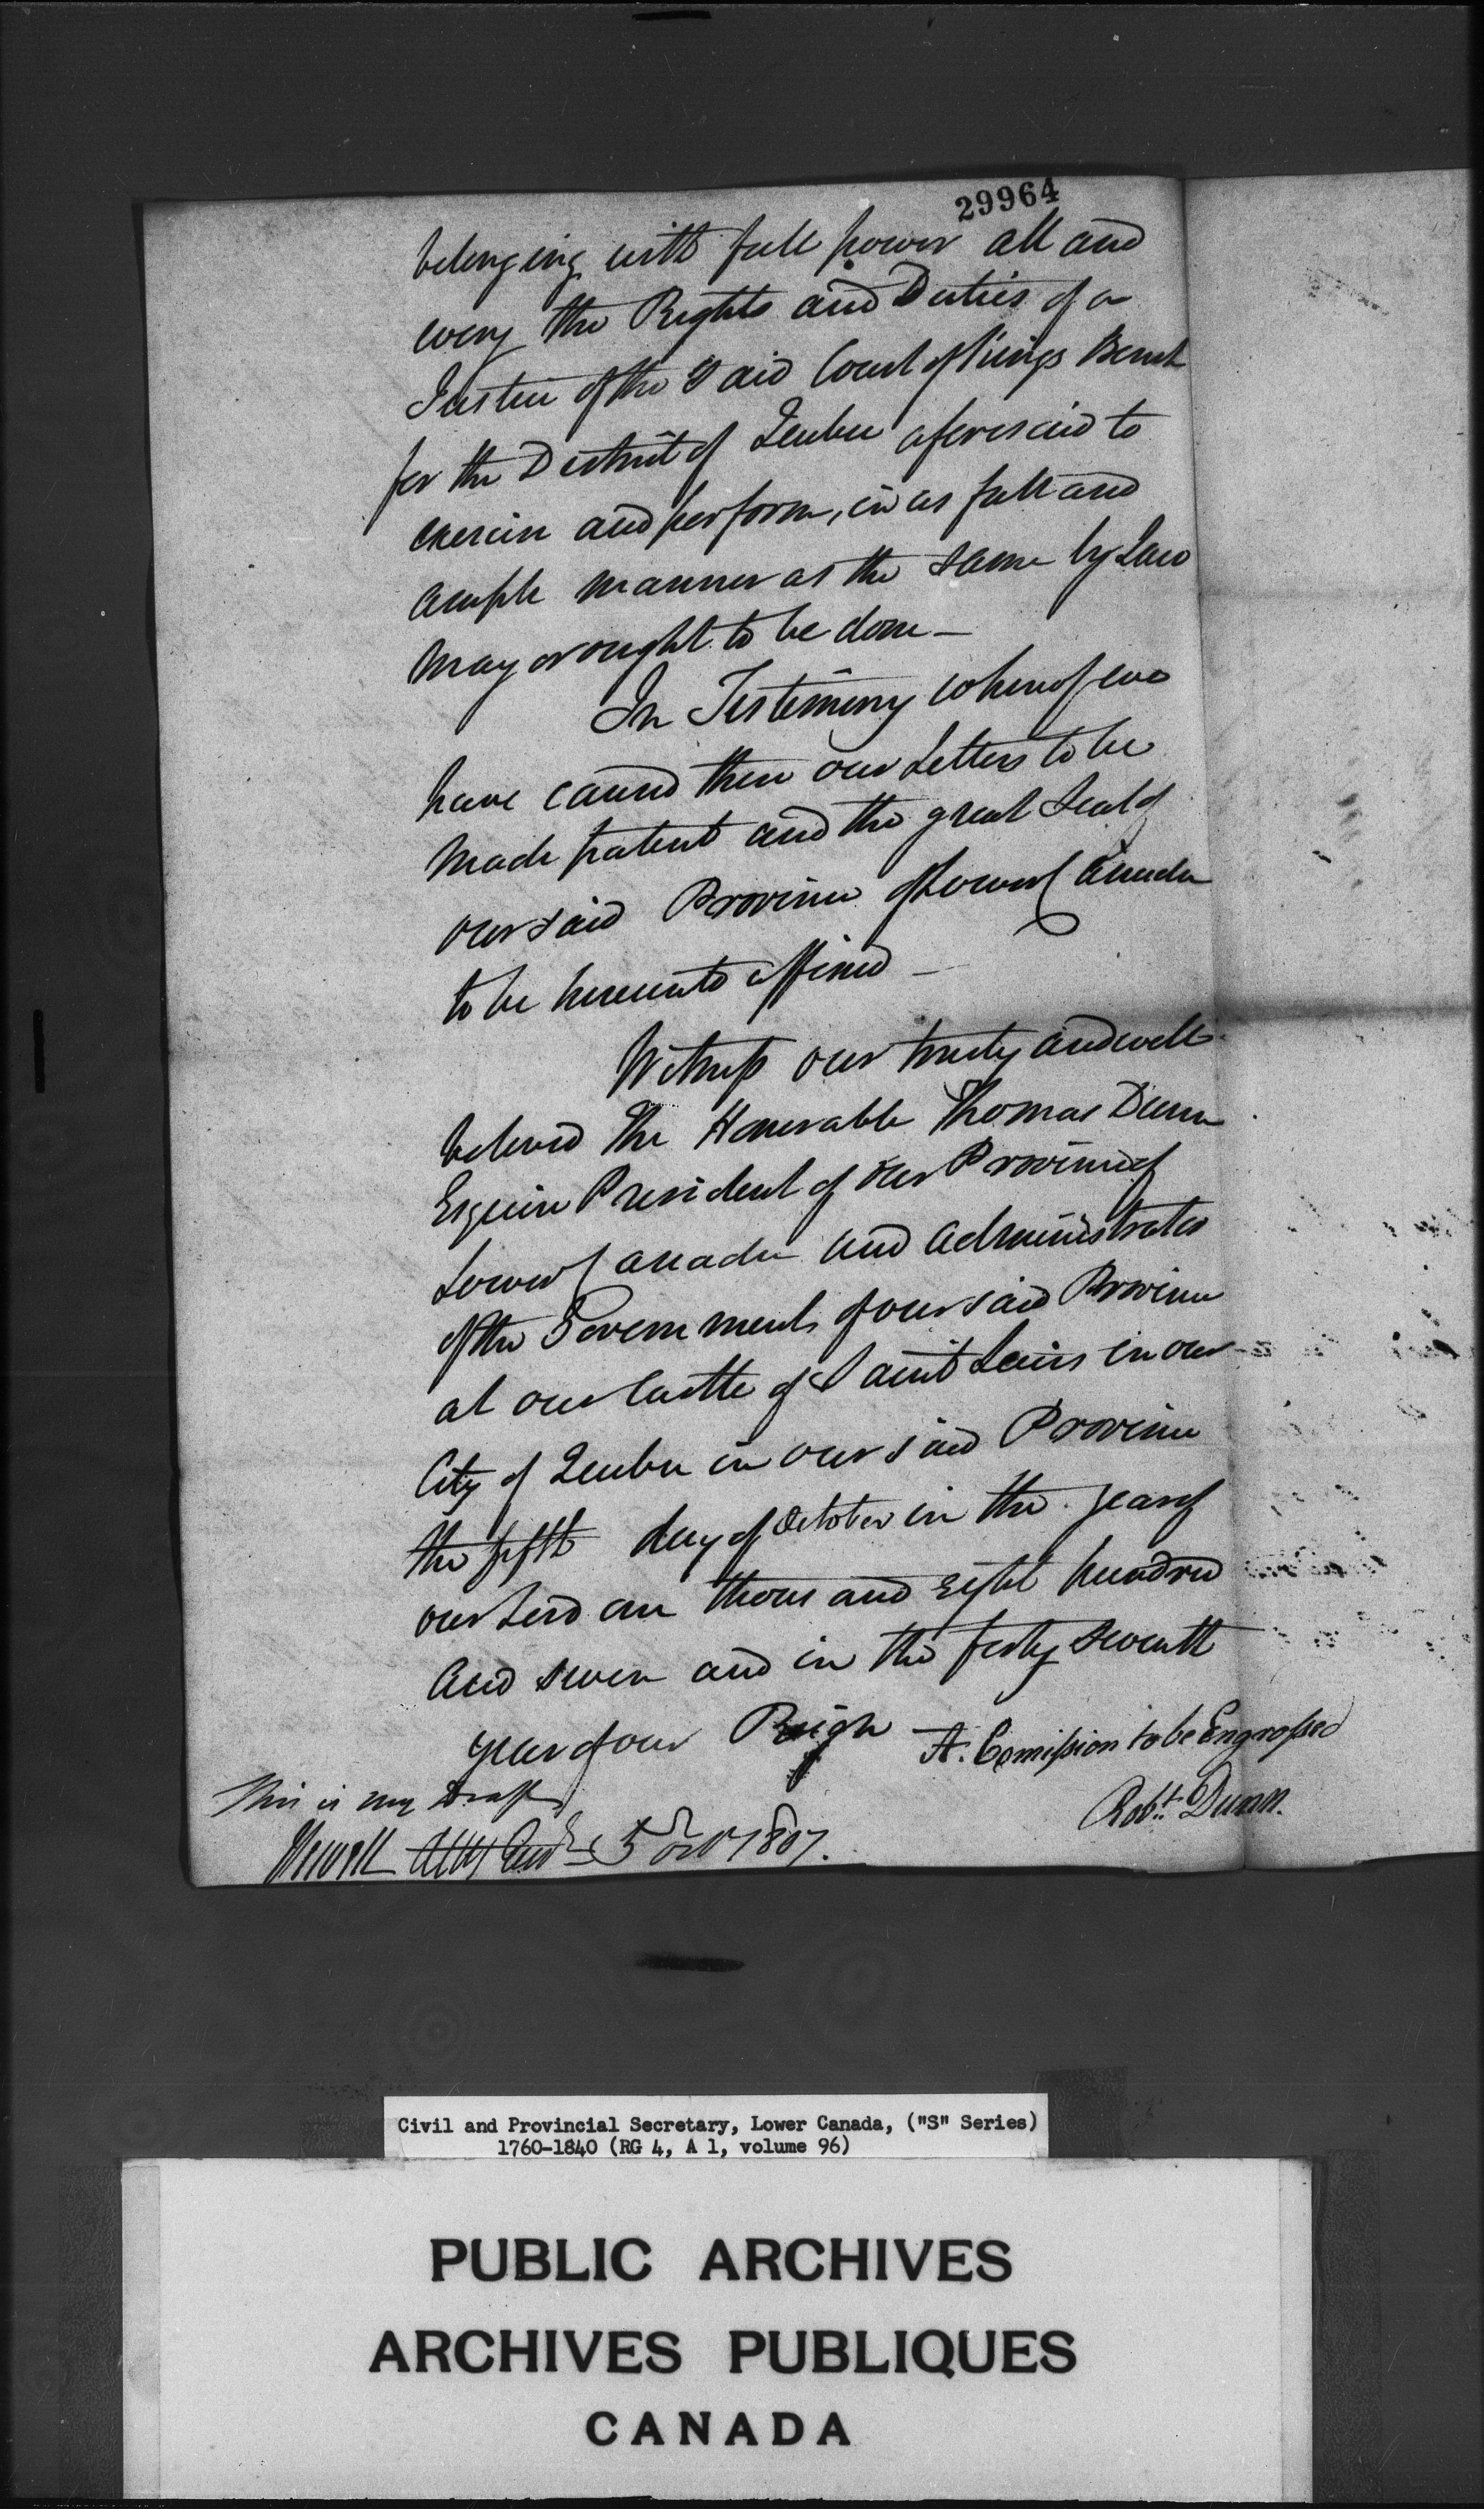 29964
belonging with full power all and
every the Rights and Duties of a
Justice of the Said Court of Kings Bench
for the District of Quebec aforesaid to
exercise and perform, in as full and
ample manner as the same by Law
may or ought to be done —
In Testimony whereof we
have caused these our Letters to be
made patent and the great Seal of
our said Province of Lower Canada
to be hereunto affixed —
Witness our trusty and well
beloved The Honorable Thomas Dunn
Esquire President of our Province of
Lower Canada and Administrator
of the Government of our said Province
at our Castle of Saint Lewis in our
City of Quebec in our said Province
the fifth day of October in the year of
our Lord one thousand Eight hundred
and seven and in the forty seventh
year of our Reign
A. Comission to be Engrossed
Robt. Dunn.
This is my Draft
5 Oct 1807.
Civil and Provincial Secretary, Lower Canada, ("S" Series)
1760-1840 (RG 4, A 1, volume 96)
PUBLIC ARCHIVES
ARCHIVES PUBLIQUES
CANADA